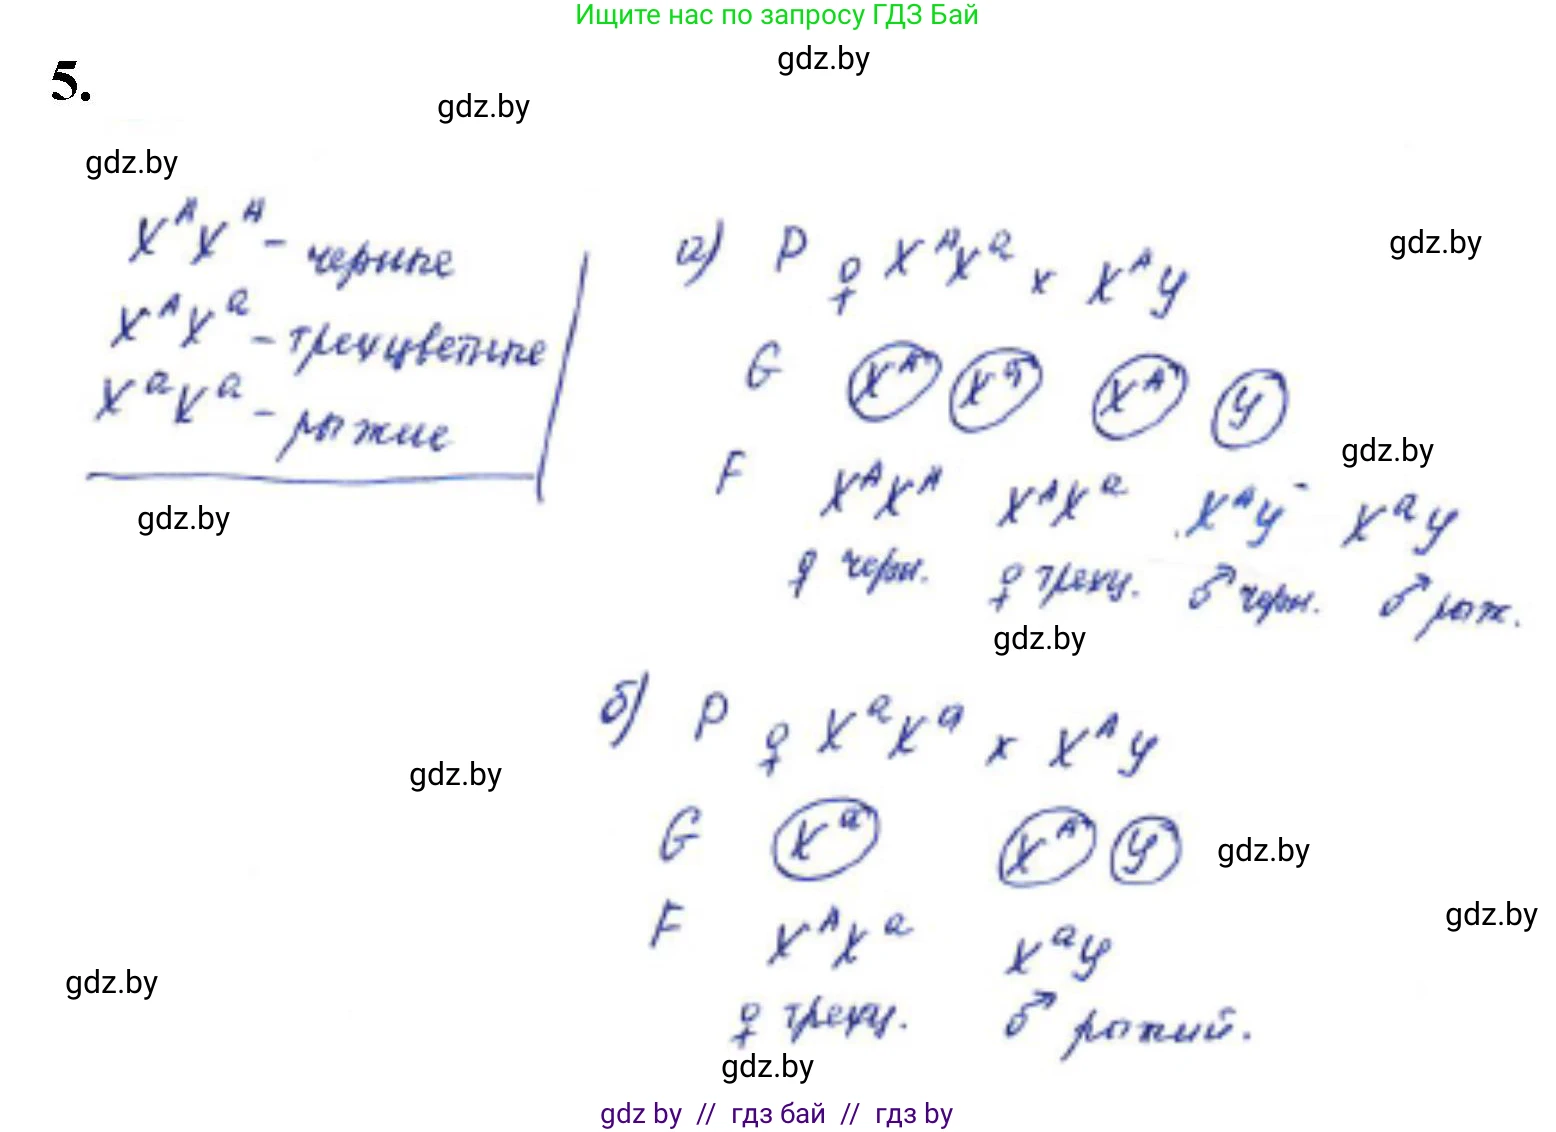 Ищите нас по запросу ГДЗ Бай
gdz.by
5.
gdz.by
gdz.by
X^A X^A - черные
X^A X^a - трехцветные
X^a X^a - рыжие
gdz.by
а) P ♀ X^A X^a x X^A y
G X^A X^a X^A y
gdz.by
F X^A X^A X^A X^a X^A y X^a y
gdz.by
♀ черн. ♀ трехц. ♂ черн. ♂ рыж.
gdz.by
б) P ♀ X^a X^a x X^A y
gdz.by
G X^a X^A y
gdz.by
F X^A X^a X^a y
gdz.by
gdz.by
♀ трехц. ♂ рыжий.
gdz.by
gdz by // гдз бай // гдз by